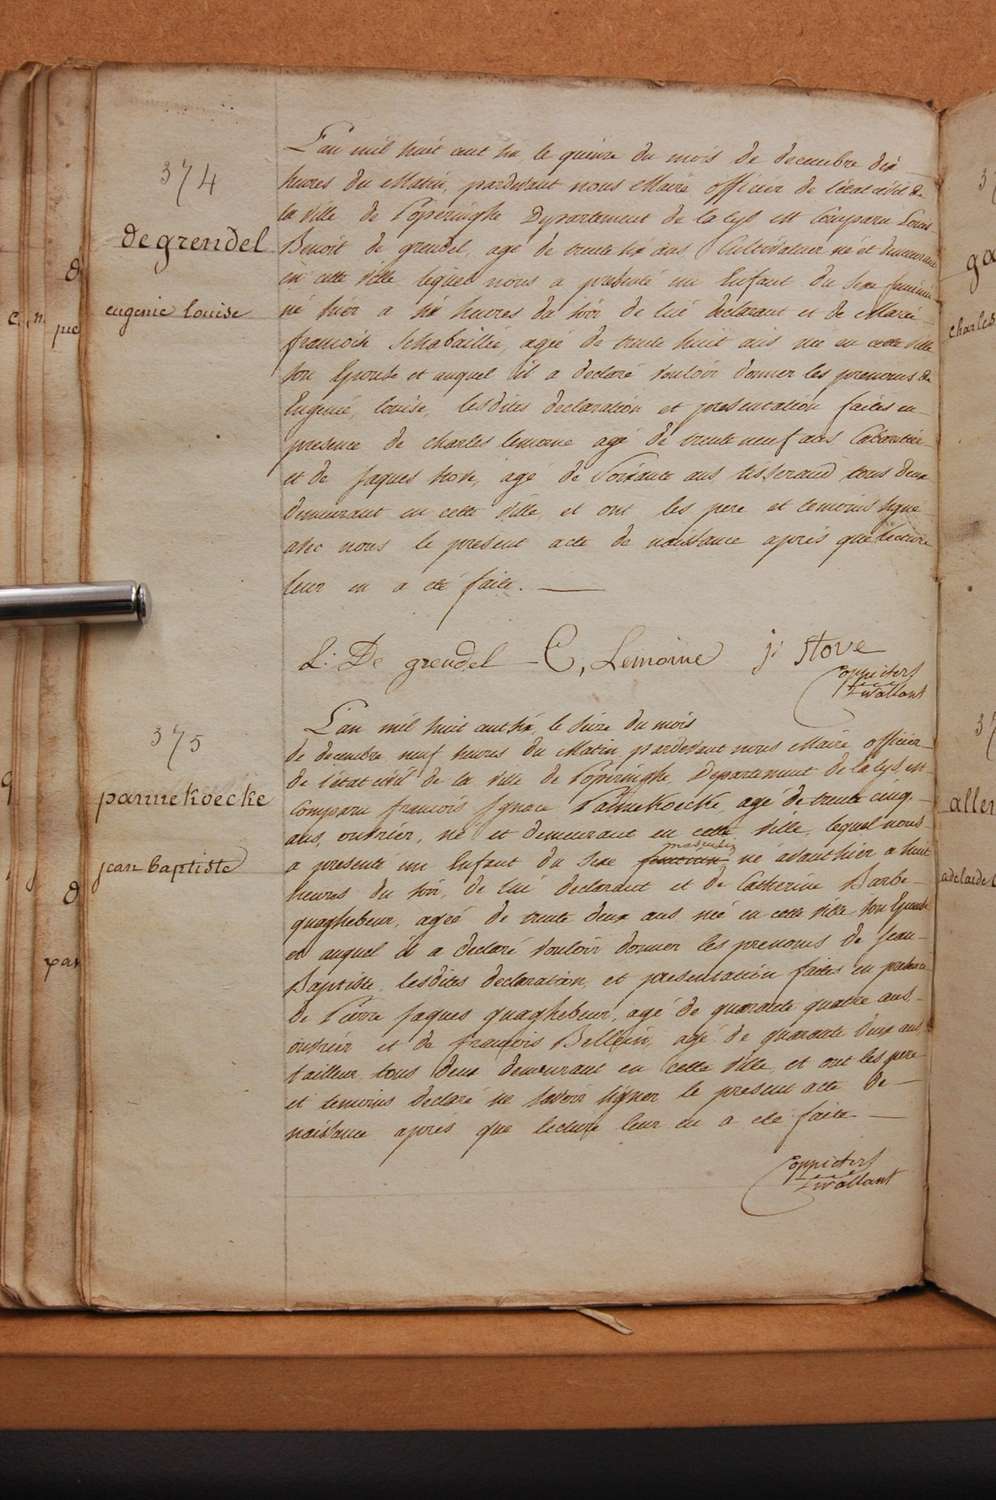 374
degrendel
eugenie louise
L'an mil huit cent six le quinze du mois de decembre dix
heures du Matin, pardevant nous Maire officier de l'état civil de
la ville de Poperinghe Departement de la Lys est comparu Louis
Benoit de grendel, agé de trente six ans Cultivateur né et demeurant
en cette ville lequel nous a presenté un Enfant du sexe feminin
né hier a six heures du soir de lui declarant et de Marie
francoise Schabaillie, agée de trente huit ans née en cette ville
son Epouse et auquel il a declaré vouloir donner les prenoms de
Eugenie, louise, lesdites declaration et presentation faites en
presence de charles lemoine agé de trente neuf ans Cabaretier
et de jaques stove, agé de soixante ans tisserand tous deux
demeurant en cette ville, et ont les pere et temoins signé
avec nous le present acte de naissance après que lecture
leur en a eté faite.
L: De grendel C, Lemoine j: stove
375
pannekoecke
jean baptiste
L'an mil huit cent six le seize du mois
de decembre neuf heures du Matin pardevant nous Maire officier
de l'état civil de la ville de Poperinghe Departement de la Lys est
comparu francois Ignace Pannekoecke agé de trente cinq
ans, ouvrier, né et demeurant en cette ville, lequel nous
a presente un Enfant du sexe feminin masculin né avanthier a huit
heures du soir, de lui declarant et de Catherine Barbe
quaghebeur, agée de trente deux ans née en cette ville son Epouse
et auquel il a declaré vouloir donner les prenoms de Jean
Baptiste, lesdites declaration, et presentation faites en presence
de Pierre jaques quaghebeur, agé de quarante quatre ans
ouvrier et de francois Bellein, agé de quarante deux ans
tailleur tous deux demeurant en cette ville, et ont les pere
et temoins declaré ne savoir signer le present acte de
naissance après que lecture leur en a eté faite